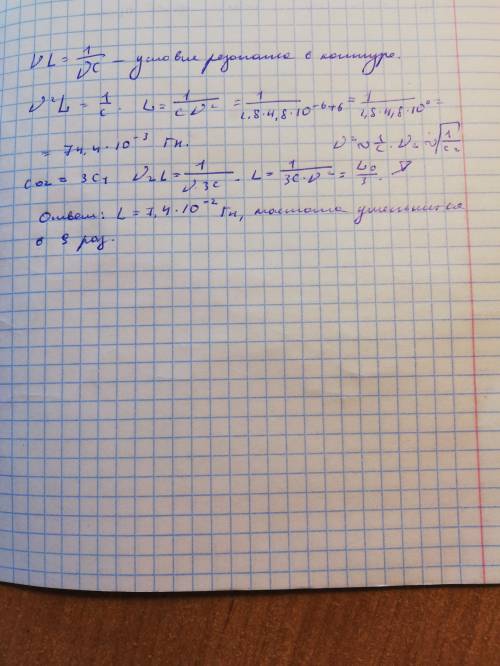 νL = 1/νC – условие резонанса в контуре.
ν²L = 1/C. L = 1/Cν² = 1/2,8·4,8·10⁻⁶⁺⁶ = 1/2,8·4,8·10⁰ =
= 74,4·10⁻³ Гн. ν² ~ 1/C. ν₂ ~ √1/C₂
C₀₂ = 3C₁ ν₂L = 1/ν3C. L = 1/3C·ν² = L₀/3.
Ответ: L = 7,4·10⁻² Гн, частота уменьшится
в 3 раз.